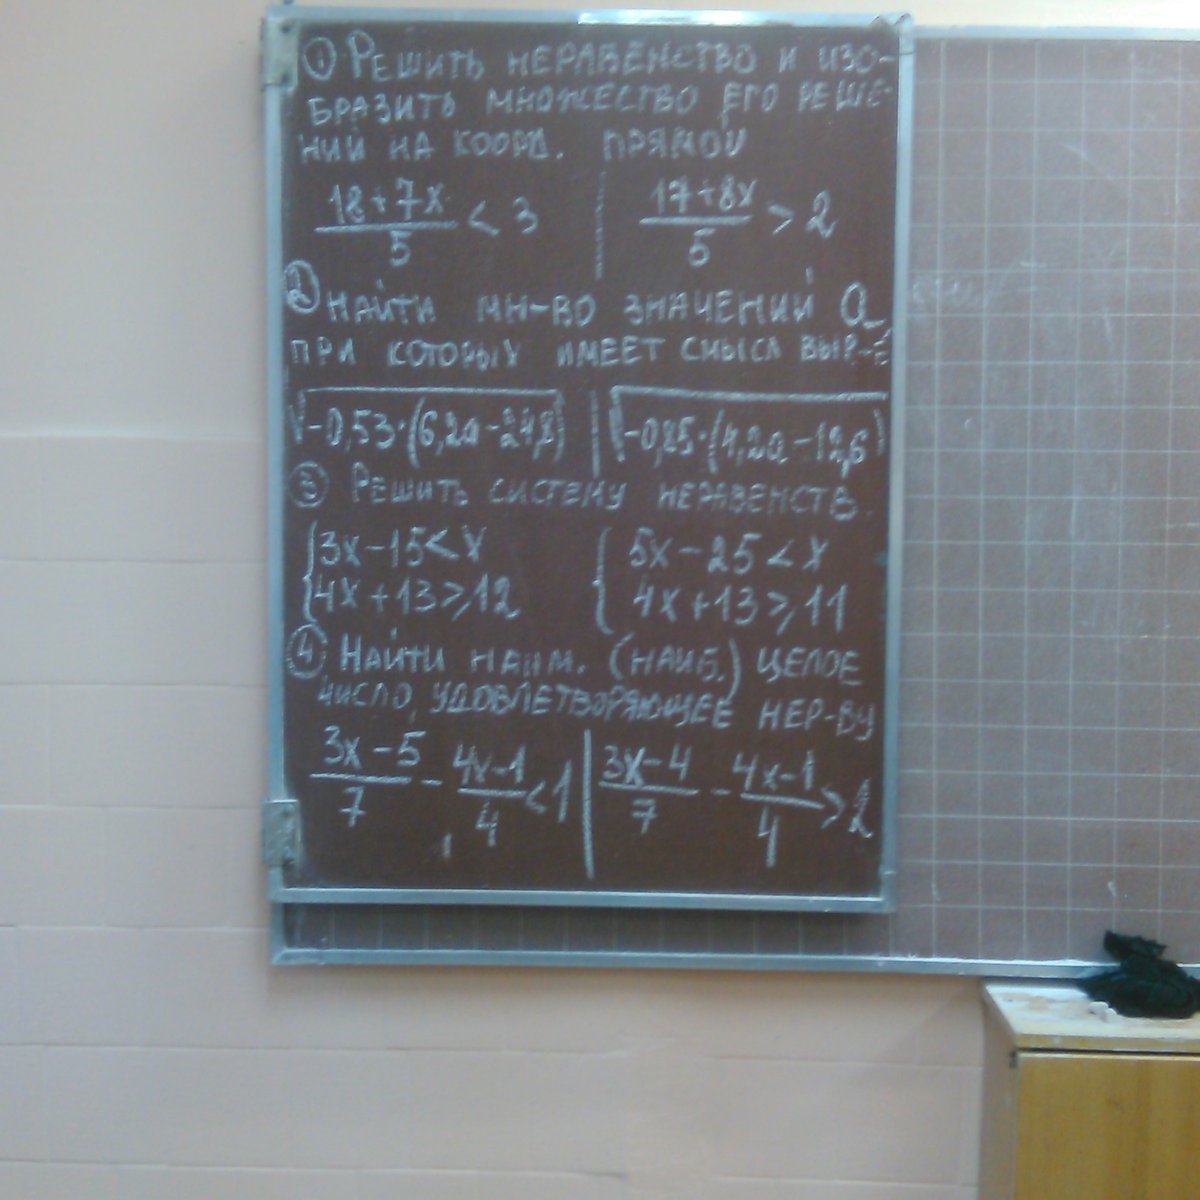 ① РЕШИТЬ НЕРАВЕНСТВО И ИЗО-
БРАЗИТЬ МНОЖЕСТВО ЕГО РЕШЕ-
НИЙ НА КООРД. ПРЯМОЙ
(18+7x)/5 < 3 | (17+8x)/5 > 2
② НАЙТИ МН-ВО ЗНАЧЕНИЙ a,
ПРИ КОТОРЫХ ИМЕЕТ СМЫСЛ ВЫР-Е
√(-0,53·(6,2a-24,8)) | √(-0,85·(4,2a-12,6))
③ РЕШИТЬ СИСТЕМУ НЕРАВЕНСТВ.
{3x-15<x {5x-25<x
{4x+13≥12 {4x+13≥11
④ НАЙТИ НАИМ. (НАИБ.) ЦЕЛОЕ
ЧИСЛО, УДОВЛЕТВОРЯЮЩЕЕ НЕР-ВУ
(3x-5)/7 - (4x-1)/4 < 1 | (3x-4)/7 - (4x-1)/4 > 2